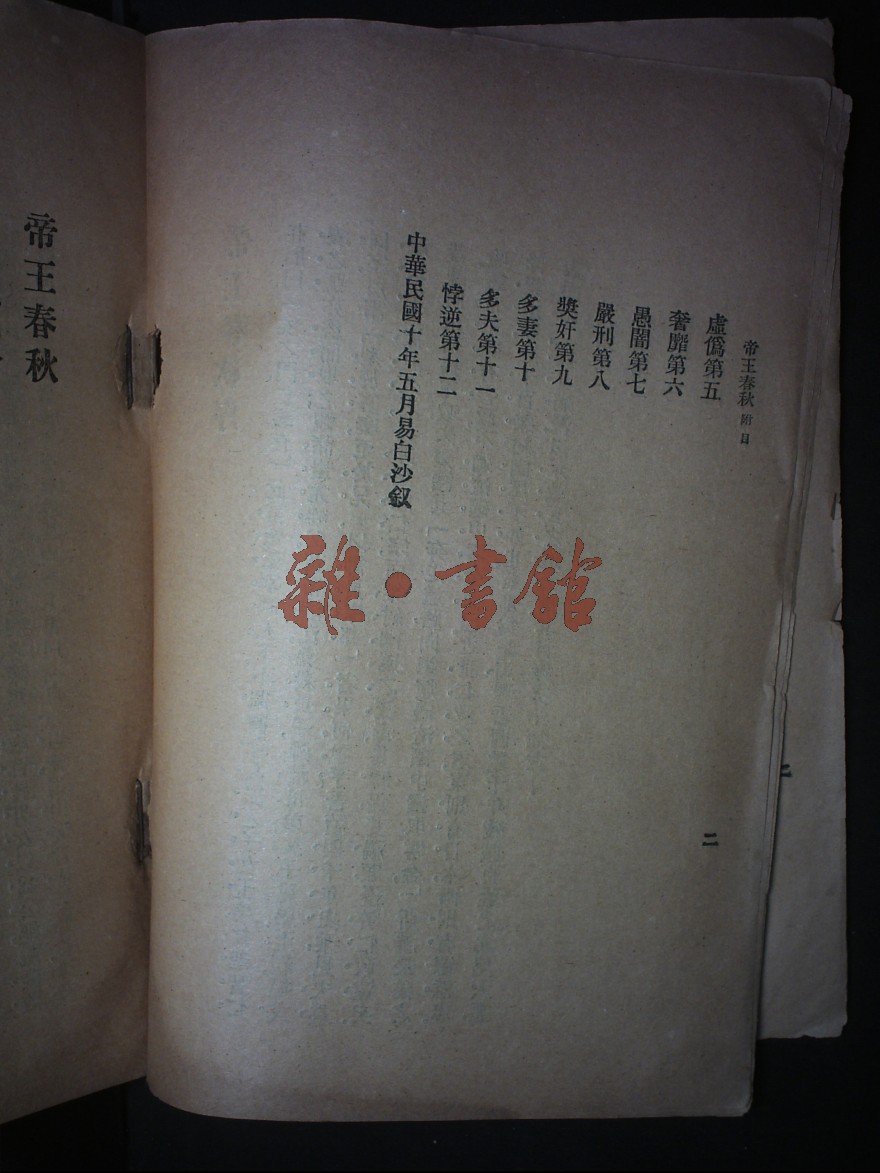 帝王春秋 附目
虛僞第五
奢靡第六
愚闇第七
嚴刑第八
獎奸第九
多妻第十
多夫第十一
悖逆第十二
中華民國十年五月易白沙敍
二
雜·書館
帝王春秋
二